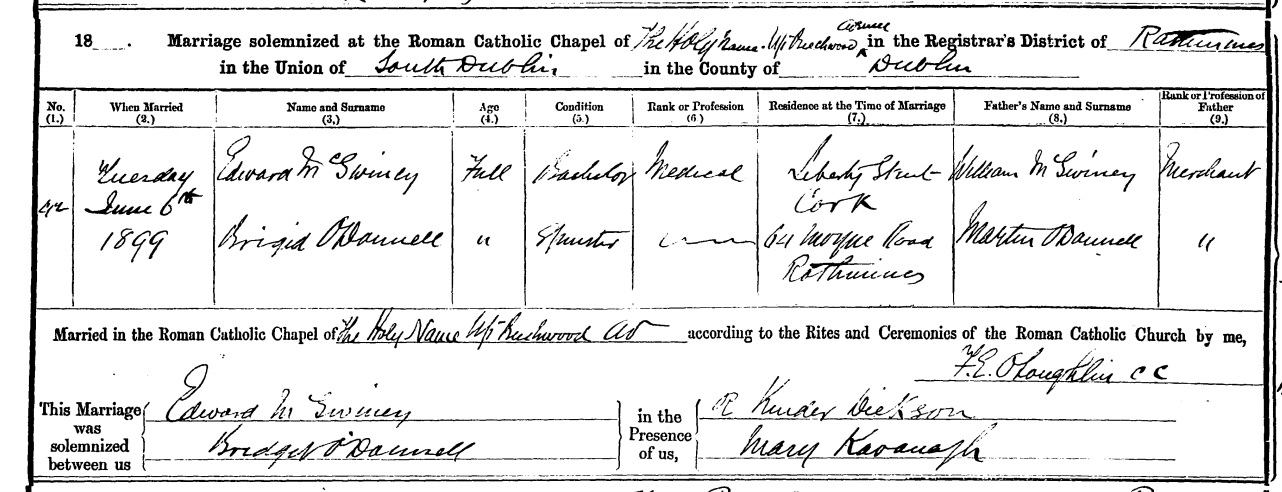 18 . Marriage solemnized at the Roman Catholic Chapel of The Holy Name. Up Beechwood Avenue in the Registrar's District of Rathmines
in the Union of South Dublin in the County of Dublin
No. When Married Name and Surname Age Condition Rank or Profession Residence at the Time of Marriage Father's Name and Surname Rank or Profession of Father
(1.) (2.) (3.) (4.) (5.) (6.) (7.) (8.) (9.)
Tuesday Edward McSwiney Full Bachelor Medical Liberty Street William McSwiney Merchant
June 6th Cork
1899 Brigid O'Donnell " Spinster 64 Moyne Road Martin O'Donnell "
Rathmines
Married in the Roman Catholic Chapel of The Holy Name Up Beechwood Av according to the Rites and Ceremonies of the Roman Catholic Church by me,
F.E. O'Loughlin C C
This Marriage was solemnized between us
Edward McSwiney
Bridget O'Donnell
in the Presence of us,
R Kinder Dickson
Mary Kavanagh